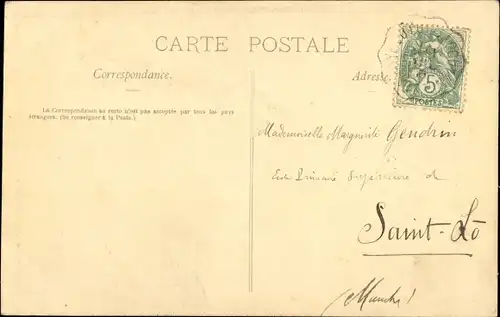 CARTE POSTALE
Correspondance.
Adresse.
La Correspondance au recto n'est pas acceptée par tous les pays
étrangers. (Se renseigner à la Poste.)
5
POSTES
Mademoiselle Marguerite Gendrin
Ecole Primaire Supérieure de
Saint-Lô
(Manche)